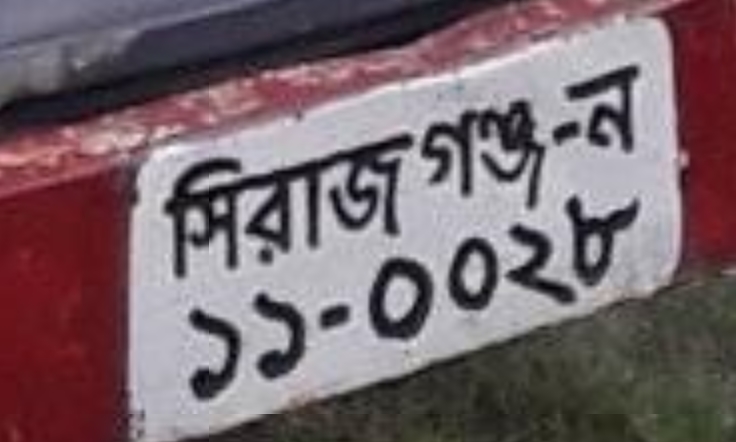 সিরাজগঞ্জ-ন
১১-০০২৮